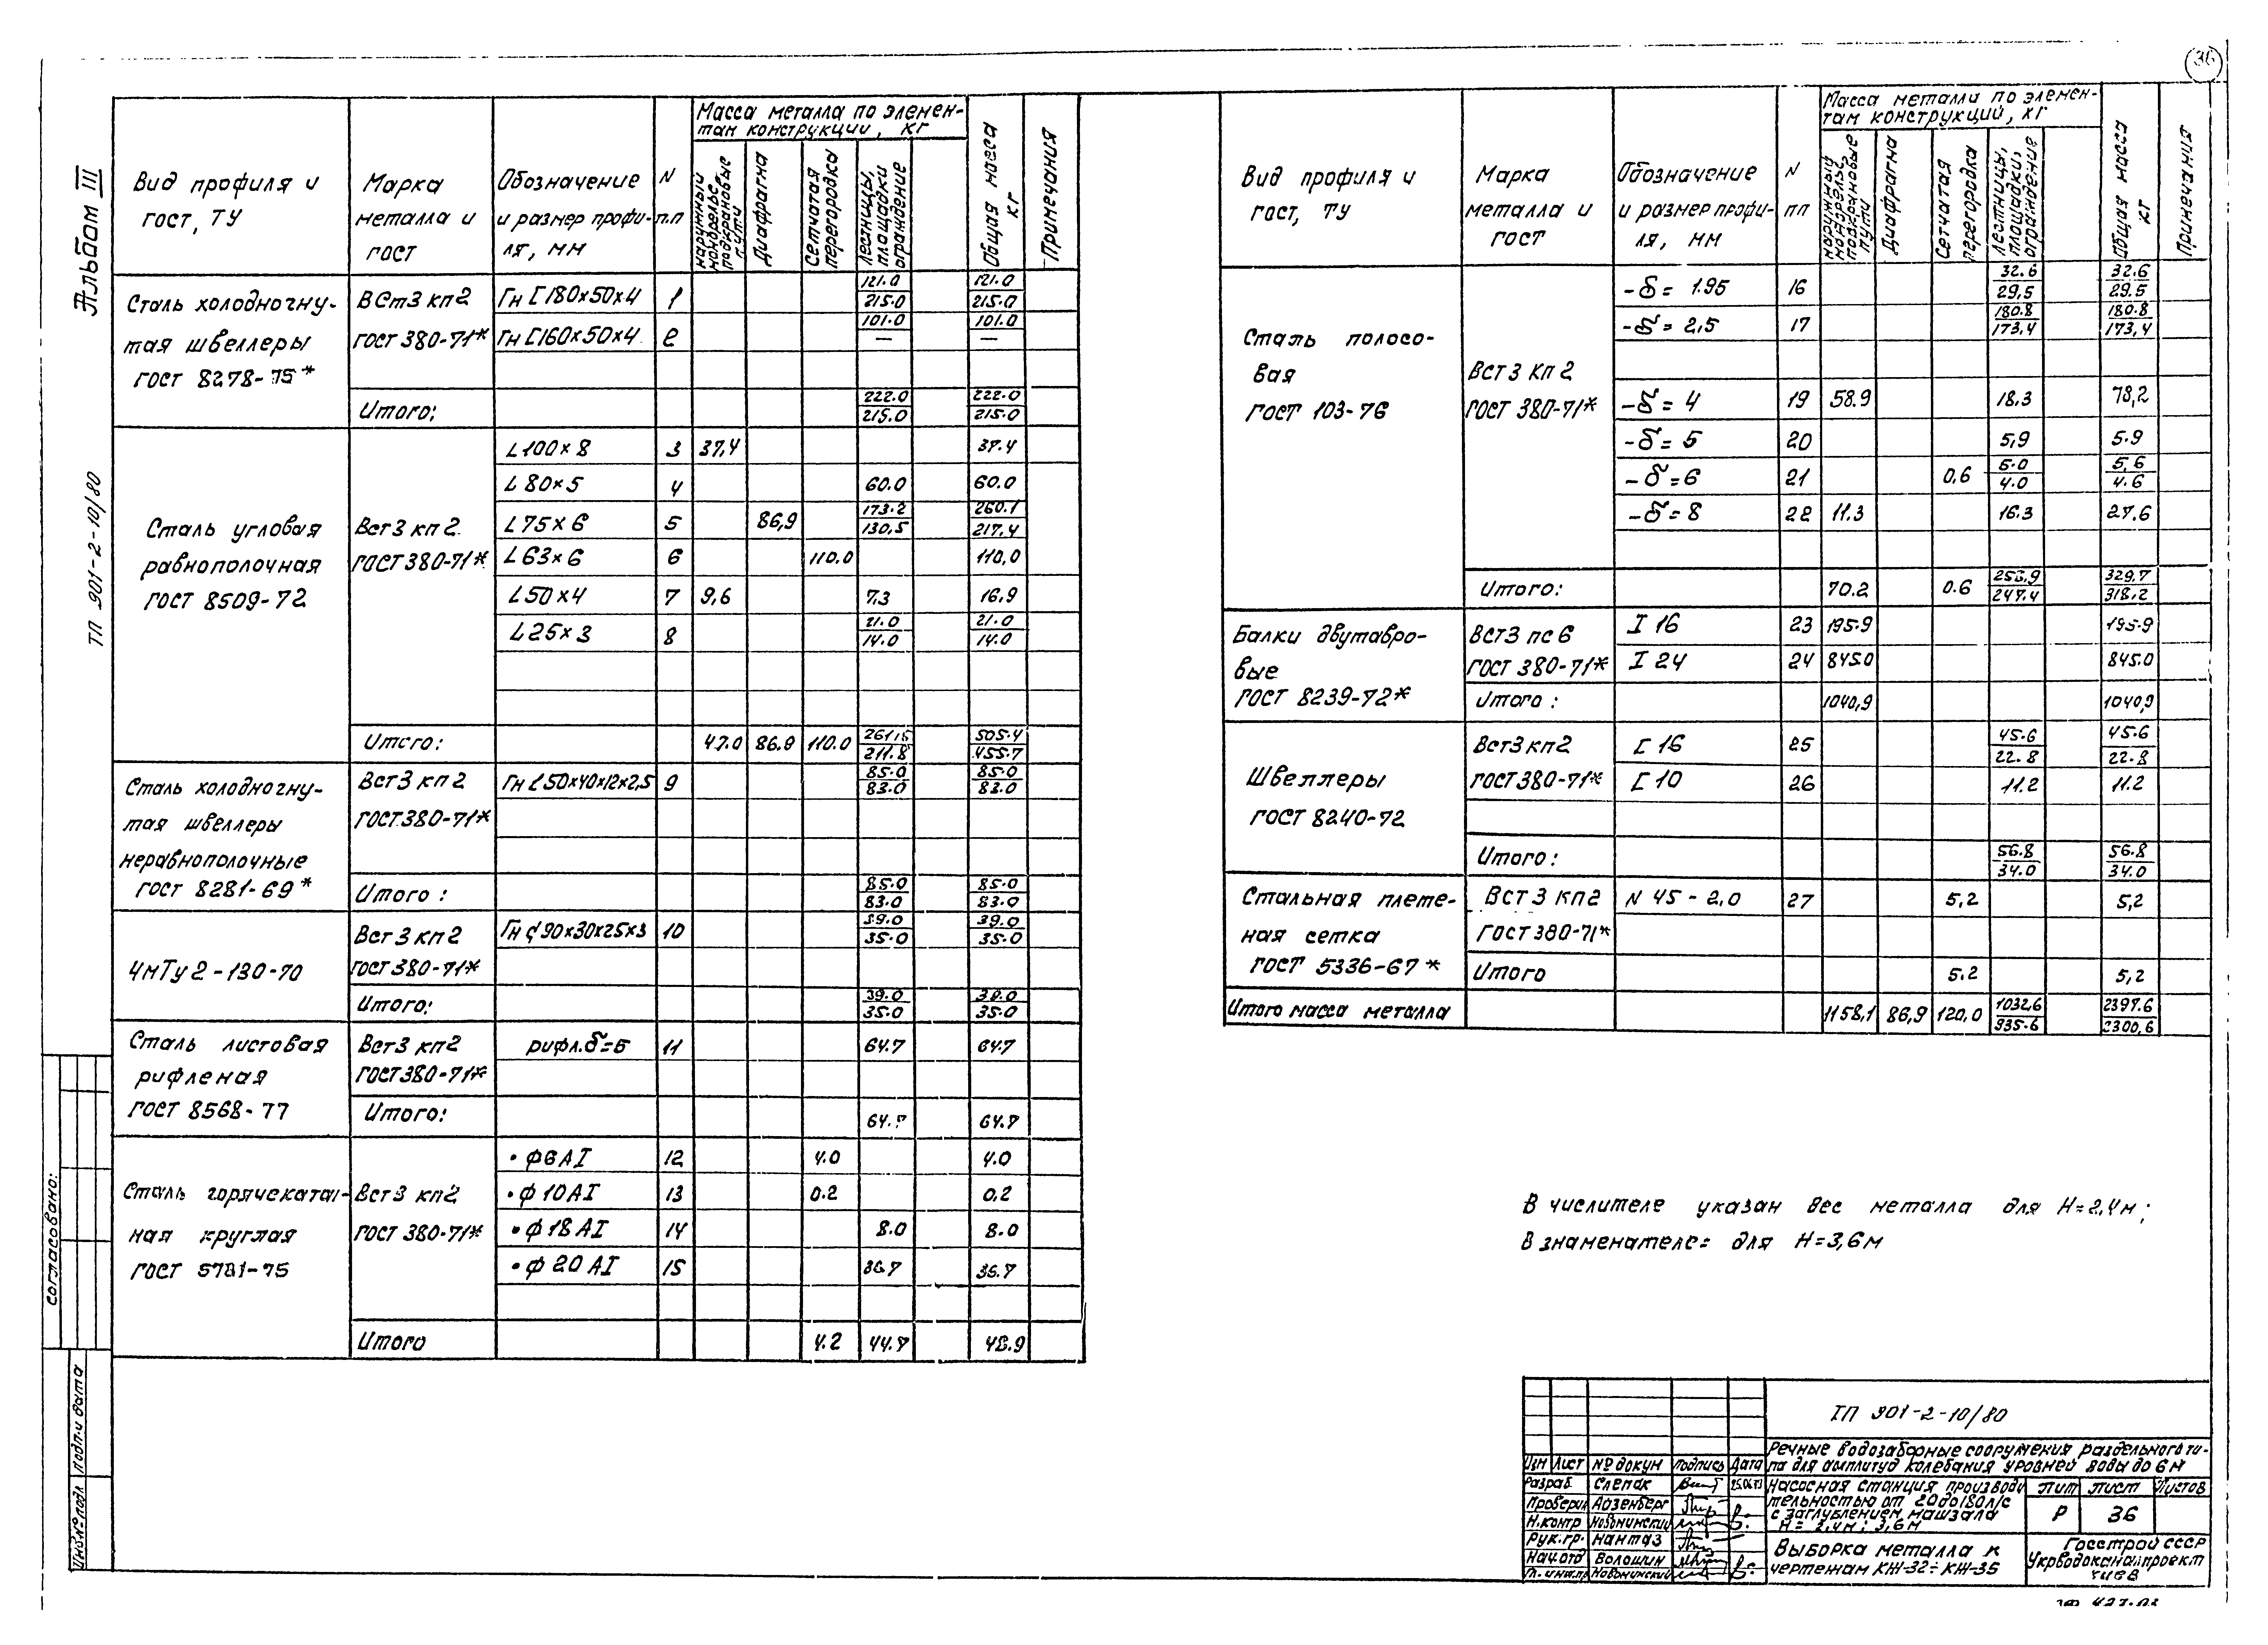 36
Альбом III
ТП 901-2-10/80
Согласовано:
Подп. и дата
Инв.№ подл
Вид профиля и
гост, ТУ
Марка
металла и
гост
Обозначение
и размер профи-
ля, мм
N
п.п
Масса металла по элемен-
там конструкции, кг
наружный
монорельс
подкрановые
пути
Диафрагма
Сетчатая
перегородка
Лестницы,
площадки
ограждение
Общая масса
кг
Примечания
Сталь холодногну-
тая швеллеры
ГОСТ 8278-75*
ВСт3 кп2
ГОСТ 380-71*
Гн [ 180×50×4 1 121.0/215.0 121.0/215.0
Гн [160×50×4 2 101.0/— 101.0/—
Итого: 222.0/215.0 222.0/215.0
Сталь угловая
равнополочная
ГОСТ 8509-72
Вст3 кп2
ГОСТ 380-71*
L100×8 3 37,4 37.4
L80×5 4 60.0 60.0
L75×6 5 86,9 173.2/130,5 260.1/217.4
L63×6 6 110.0 110,0
L50×4 7 9,6 7,3 16,9
L25×3 8 21.0/14.0 21.0/14.0
Итого: 47.0 86.9 110.0 261,5/211.8 505.4/455.7
Сталь холодногну-
тая швеллеры
неравнополочные
ГОСТ 8281-69*
Вст3 кп2
ГОСТ 380-71*
Гн [50×40×12×2,5 9 85.0/83.0 85.0/83.0
Итого: 85.0/83.0 85.0/83.0
ЧмТу 2-130-70
Вст3 кп2
ГОСТ 380-71*
Гн 90×30×25×3 10 39.0/35.0 39.0/35.0
Итого: 39.0/35.0 39.0/35.0
Сталь листовая
рифленая
ГОСТ 8568-77
Вст3 кп2
ГОСТ 380-71*
рифл. δ=5 11 64.7 64.7
Итого: 64.7 64.7
Сталь горячеката-
ная круглая
ГОСТ 5781-75
Вст3 кп2
ГОСТ 380-71*
• ф6 АI 12 4.0 4.0
• ф 10 АI 13 0.2 0,2
• ф 18 АI 14 8.0 8.0
• ф 20 АI 15 36.7 36.7
Итого 4.2 44.7 48.9
Вид профиля и
гост, ТУ
Марка
металла и
гост
Обозначение
и размер профи-
ля, мм
N
пп
Масса металла по элемен-
там конструкций, кг
наружный
монорельс
подкрановые
пути
Диафрагма
Сетчатая
перегородка
Лестницы,
площадки,
ограждение
Общая масса
кг
Примечания
Сталь полосо-
вая
ГОСТ 103-76
Вст3 кп2
ГОСТ 380-71*
-δ = 1.95 16 32.6/29,5 32.6/29.5
-δ = 2,5 17 180.8/173,4 180.8/173,4
-δ = 4 19 58.9 18,3 78,2
-δ = 5 20 5,9 5.9
-δ = 6 21 0,6 5.0/4.0 5,6/4.6
-δ = 8 22 11.3 16.3 27.6
Итого: 70.2 0.6 258,9/247.4 329.7/318,2
Балки двутавро-
вые
ГОСТ 8239-72*
Вст3 пс6
ГОСТ 380-71*
I 16 23 195.9 195.9
I 24 24 845.0 845.0
Итого: 1040,9 1040,9
Швеллеры
ГОСТ 8240-72
Вст3 кп2
ГОСТ 380-71*
[ 16 25 45.6/22.8 45.6/22.8
[ 10 26 11.2 11.2
Итого: 56.8/34.0 56.8/34.0
Стальная плете-
ная сетка
ГОСТ 5336-67*
Вст3 кп2
ГОСТ 380-71*
N 45 - 2,0 27 5,2 5,2
Итого 5.2 5,2
Итого масса металла 1158,1 86,9 120,0 1032,6/935.6 2397.6/2300,6
В числителе указан вес металла для Н=2,4м;
В знаменателе: для Н=3,6м
ТП 901-2-10/80
Речные водозаборные сооружения раздельного ти-
па для амплитуд колебания уровней воды до 6м
Изм Лист № докум Подпись Дата
Разраб. Слепак 25.06.79
Проверил Айзенберг
Н.контр Новоминский
Рук.гр. Нантаз
Нач.отд Волошин
Гл.инж.пр Новоминский
Насосная станция производи
тельностью от 20 до 180 л/с
с заглублением машзала
Н = 2,4м; 3,6м
Лит Лист Листов
Р 36
Выборка металла к
чертежам КЖ-32÷КЖ-35
Госстрой СССР
Укрводоканалпроект
Киев